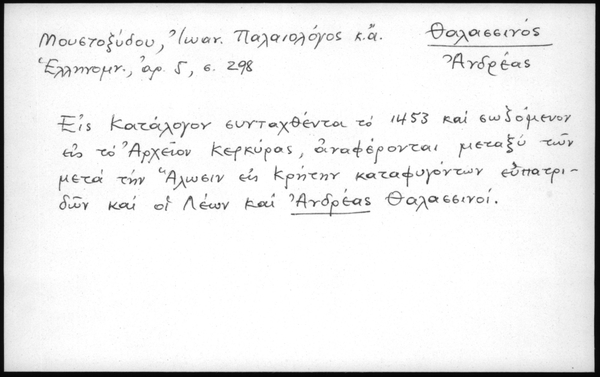 Μουστοξύδου, Ἰωαν. Παλαιολόγος κ.ἄ.
Ἑλληνομν., ἀρ. 5, σ. 298
Θαλασσινός
Ἀνδρέας
Εἰς Κατάλογον συνταχθέντα τό 1453 καί σωζόμενον
εἰς τό Ἀρχεῖον Κερκύρας, ἀναφέρονται μεταξύ τῶν
μετά τήν Ἅλωσιν εἰς Κρήτην καταφυγόντων εὐπατρι-
δῶν καί οἱ Λέων καί Ἀνδρέας Θαλασσινοί.